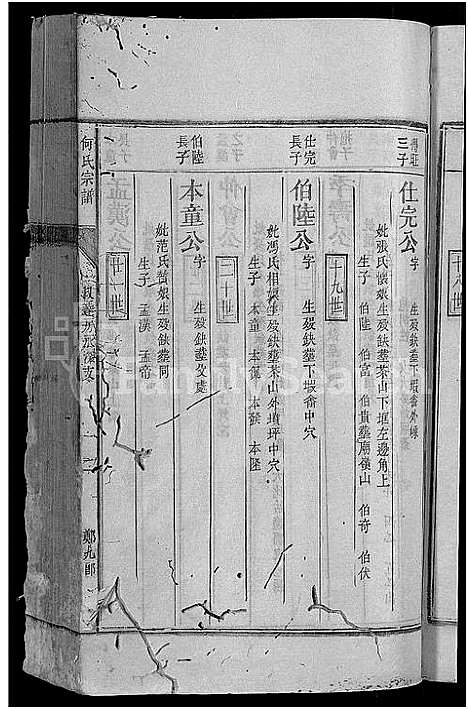 十八世
三子
仕完公
字 生歿缺塟下塅畲外嵊
妣張氏懷娘生歿缺塟茶山下垇左邊角上
生子 伯陸 伯富 伯貴塟廟嶺山 伯奇 伯伏
十九世
仕完
長子
伯陸公
字 生歿缺塟下塅畲中穴
妣馮氏相娘生歿缺塟茶山外墳坪中穴
生子 本童 本保 本發 本隆
二十世
伯陸
長子
本童公
字 生歿缺塟父處
妣范氏 生歿缺塟同
生子 孟漢 孟帝
廿一世
何氏宗譜
鄭九郎